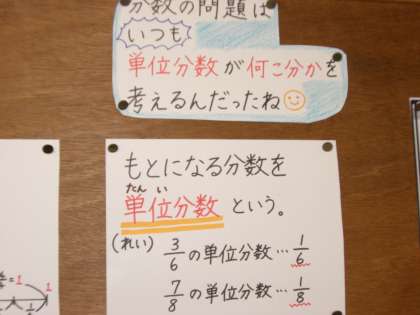 分数の問題は
いつも
単位分数が何こ分かを
考えるんだったね
もとになる分数を
たんい
単位分数という。
(れい) 3/6の単位分数…1/6
7/8の単位分数…1/8
=1
1